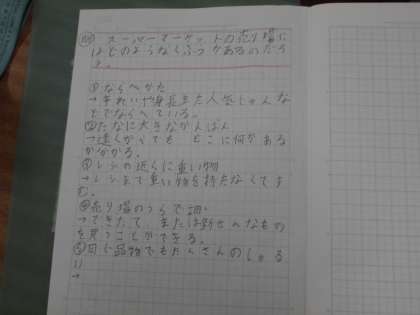 問 スーパーマーケットの売り場に
はどのようなくふうがあるのだろ
う。
①ならべかた
→きれいや身長また人気じゅんな
どでならべている。
②たなに大きなかんばん
→遠くからでも どこに何がある
かが分かる。
③レジの近くに重い物
→レジまで重い物を持たなくてす
む。
④売り場のうらで調
→できたて または新せんなもの
を買うことができる。
⑤同じ品物でもたくさんのしゅる
い
→